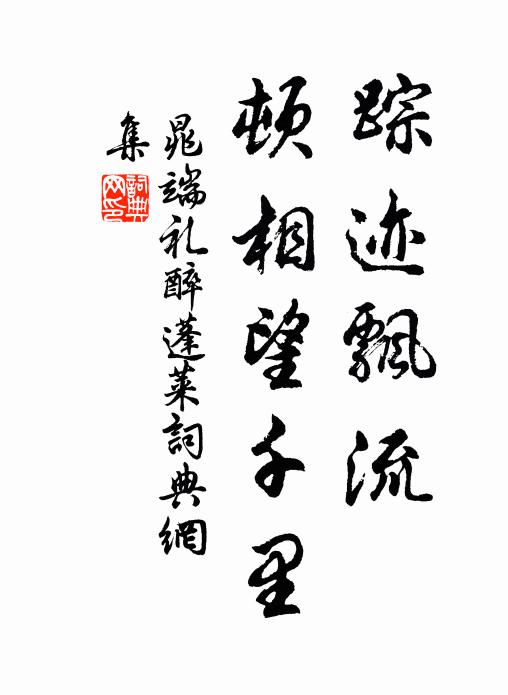 踪迹飘流
顿相望千里
晁端礼醉蓬莱詞典網
集
詞典
网印